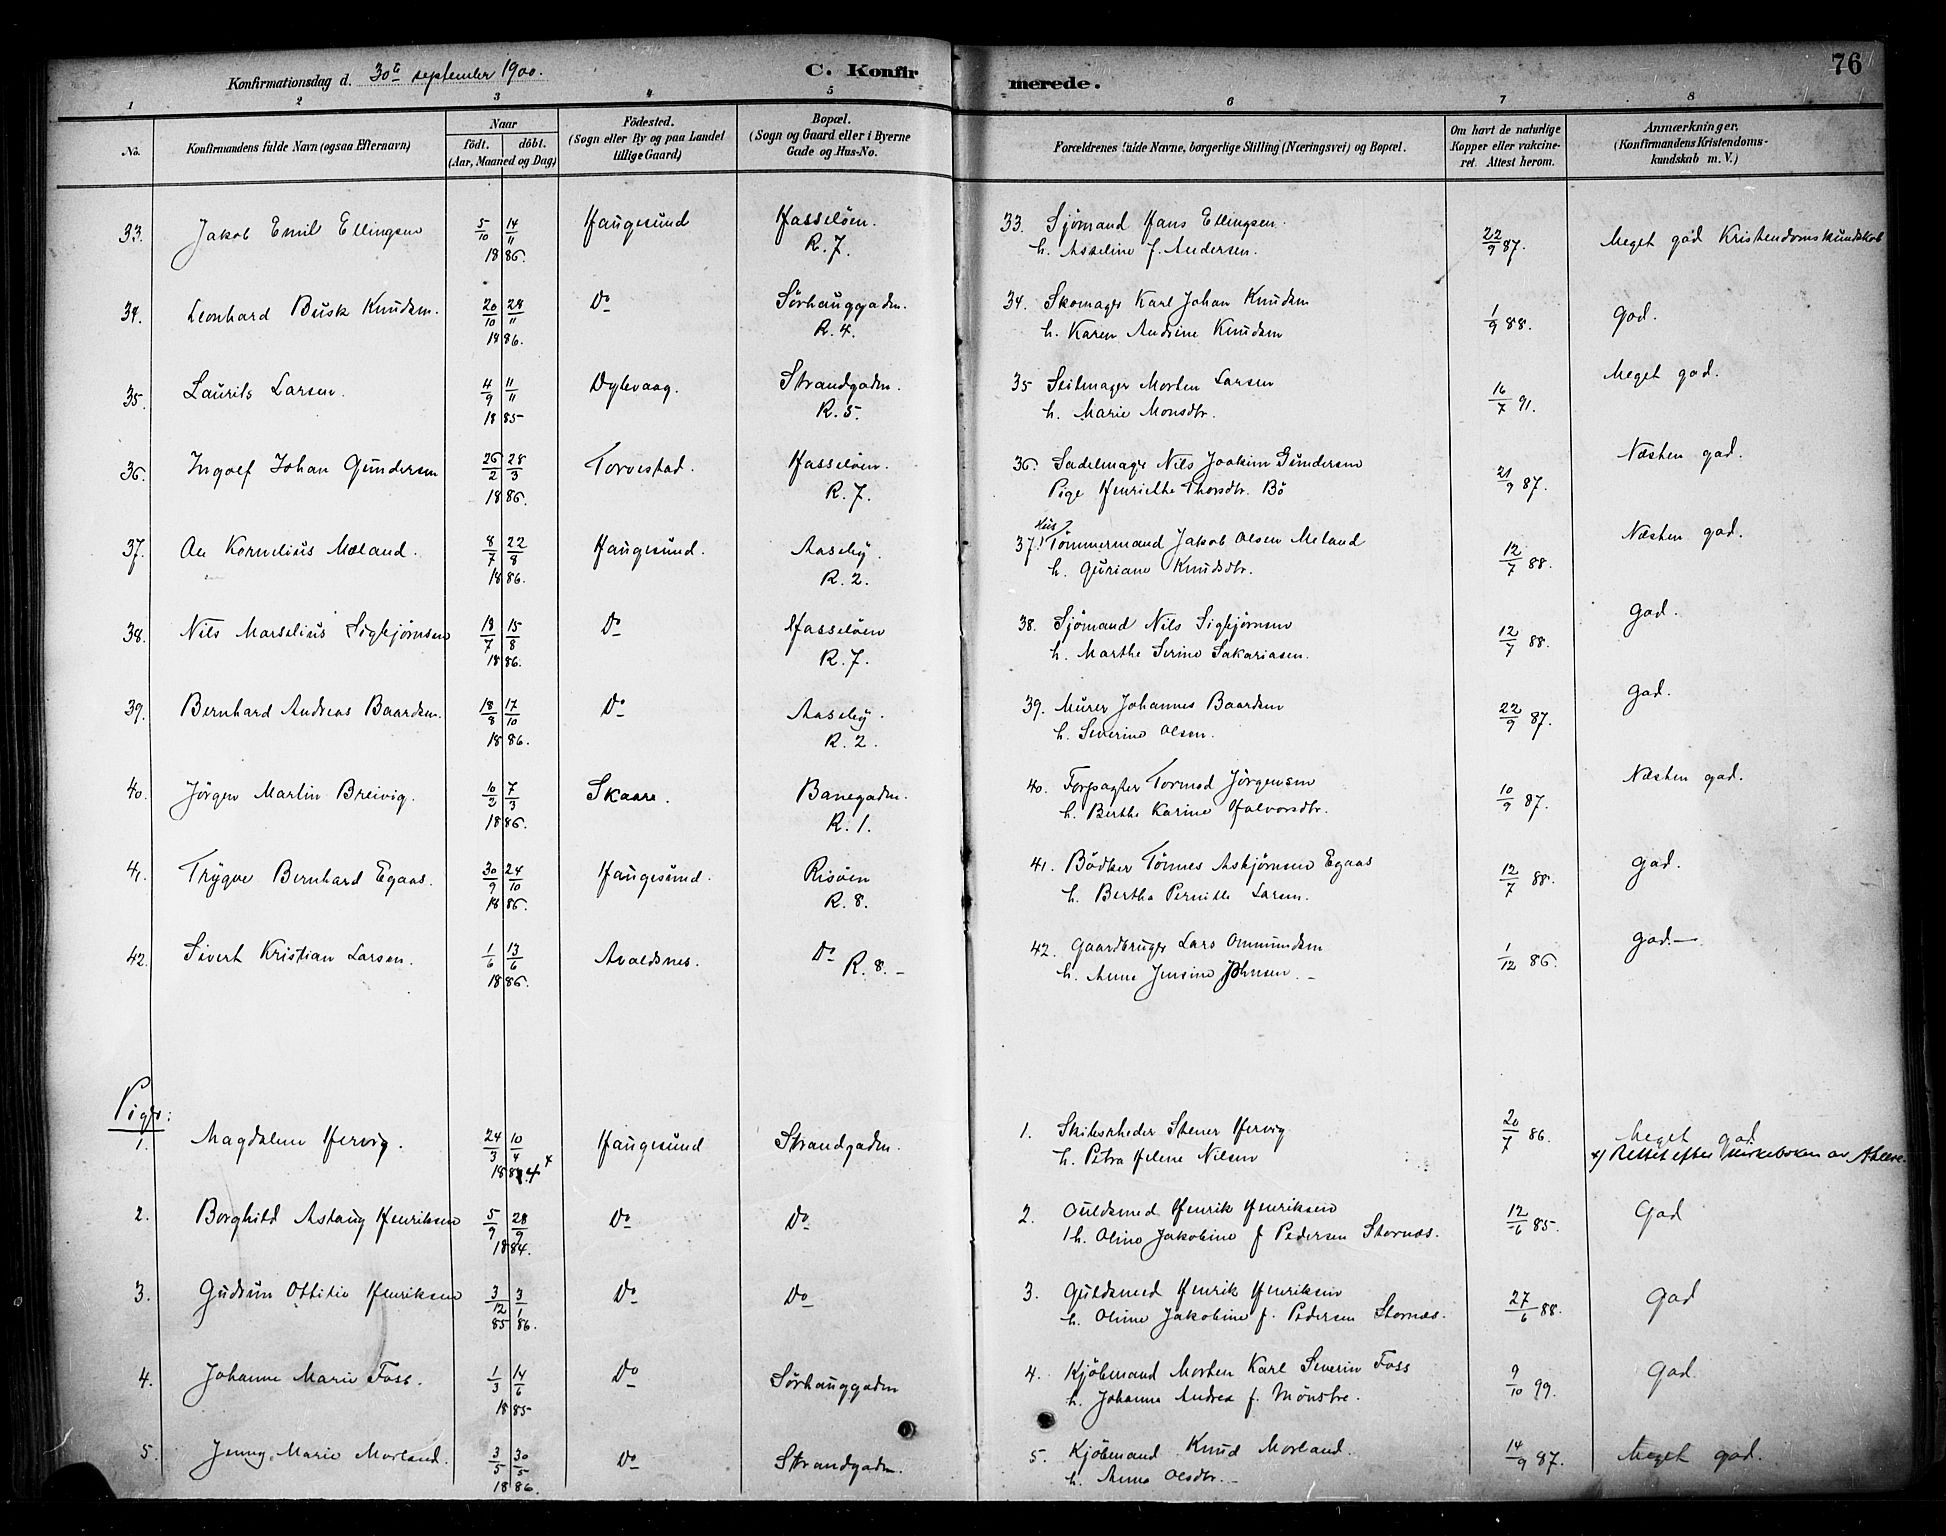 76
Konfirmationsdag d. 30te september 1900.
C. Konfirmerede.
1 2 3 4 5 6 7 8
No.
Konfirmandens fulde Navn (ogsaa Efternavn)
Naar
födt. döbt.
(Aar, Maaned og Dag)
Födested.
(Sogn eller By og paa Landet
tillige Gaard)
Bopæl.
(Sogn og Gaard eller i Byerne
Gade og Hus-No.
Forældrenes fulde Navne, borgerlige Stilling (Næringsvei) og Bopæl.
Om havt de naturlige
Kopper eller vakcine-
ret. Attest herom.
Anmærkninger.
(Konfirmandens Kristendoms-
kundskab m. V.)
33. Jakob Emil Ellingsen 5/10 14/11 Haugesund Hasseløen. 33. Sjømand Hans Ellingsen 22/9 87. Meget god Kristendomskundskab
1886. R. 7. h. Asseline f. Andersen.
34. Leonhard Busk Knudsen. 20/10 28/11 Do Sørhauggaden. 34. Skomager Karl Johan Knudsen 1/9 88. god.
1886. R. 4. h. Karen Andrine Knudsen
35. Laurits Larsen. 4/9 11/11 Dylevaag. Strandgaden. 35 Seilmager Morten Larsen 16/7 91. Meget god.
1885 R. 5. h. Marie Monsdtr.
36. Ingolf Johan Gundersen 26/2 28/3 Torvestad. Hasseløen. 36. Sadelmager Nils Joakim Gundersen 21/9 87. Næsten god.
1886. R. 7. Pige Henriette Thorsdtr. Bö
37. Au Kornelius Mæland. 8/7 22/8 Haugesund. Aaseby. 37. Hus? Tømmermand Jakob Olsen Meland 12/7 88. Næsten god.
1886. R. 2. h. Guriane Knudsdtr.
38. Nils Marselius Sigbjørnsen 18/7 15/8 Do Hasseløen 38. Sjømand Nils Sigbjørnsen 12/7 88. god.
1886. R. 7. h. Marthe Serine Sakariasen.
39. Bernhard Andreas Baardsen. 18/8 17/10 Do Aaseby. 39. Murer Johannes Baardsen 22/9 87. god.
1886. R. 2. h. Severine Olsen.
40. Jörgen Martin Breivig. 10/2 7/3 Skaare. Banegaden. 40. Forpagter Tormod Jörgensen 10/9 87. Næsten god.
1886. R. 1. h. Berthe Karine Halvorsdtr.
41. Trygve Bernhard Egaas. 30/9 24/10 Haugesund. Risøen 41. Bødker Tönnes Asbjørnsen Egaas 12/7 88. god.
1886. R. 8. h. Bertha Pernille Larsen.
42. Sivert Kristian Larsen. 1/6 13/6 Avaldsnes. Do R. 8. - 42. Gaardbruger Lars Ommundsen 1/12 86. god. -
1886. h. Anne Jensine Johnsen. -
Piger:
1. Magdalene Hervig. 24/3 10/4 Haugesund Strandgaden. 1. Skibsrheder Stener Hervig 20/7 86. Meget god
1884 x h. Petra Helene Nilsen x) Rettet efter Kirkeboken av
2. Borghild Aslaug Henriksen 5/9 28/9 Do Do 2. Guldsmed Henrik Henriksen 12/6 85. God
1884. h. Oline Jakobine f Pedersen Stornæs.
3. Gudrun Ottilie Henriksen 3/12 3/1 Do Do 3. Guldsmed Henrik Henriksen 27/6 88. God
85 86. h. Oline Jakobine f. Pedersen Stornæs.
4. Johanne Marie Foss. 1/3 14/6 Do Sørhauggaden 4. Kjöbmand Morten Karl Severin Foss 9/10 99. God.
1885 h. Johanna Andrea f. Mønstre.
5. Jenny Marie Morland. 3/5 30/5 Do Strandgaden. 5. Kjöbmand Knud Morland. 14/9 87. Meget god.
1886. h. Anna Olsdtr. -